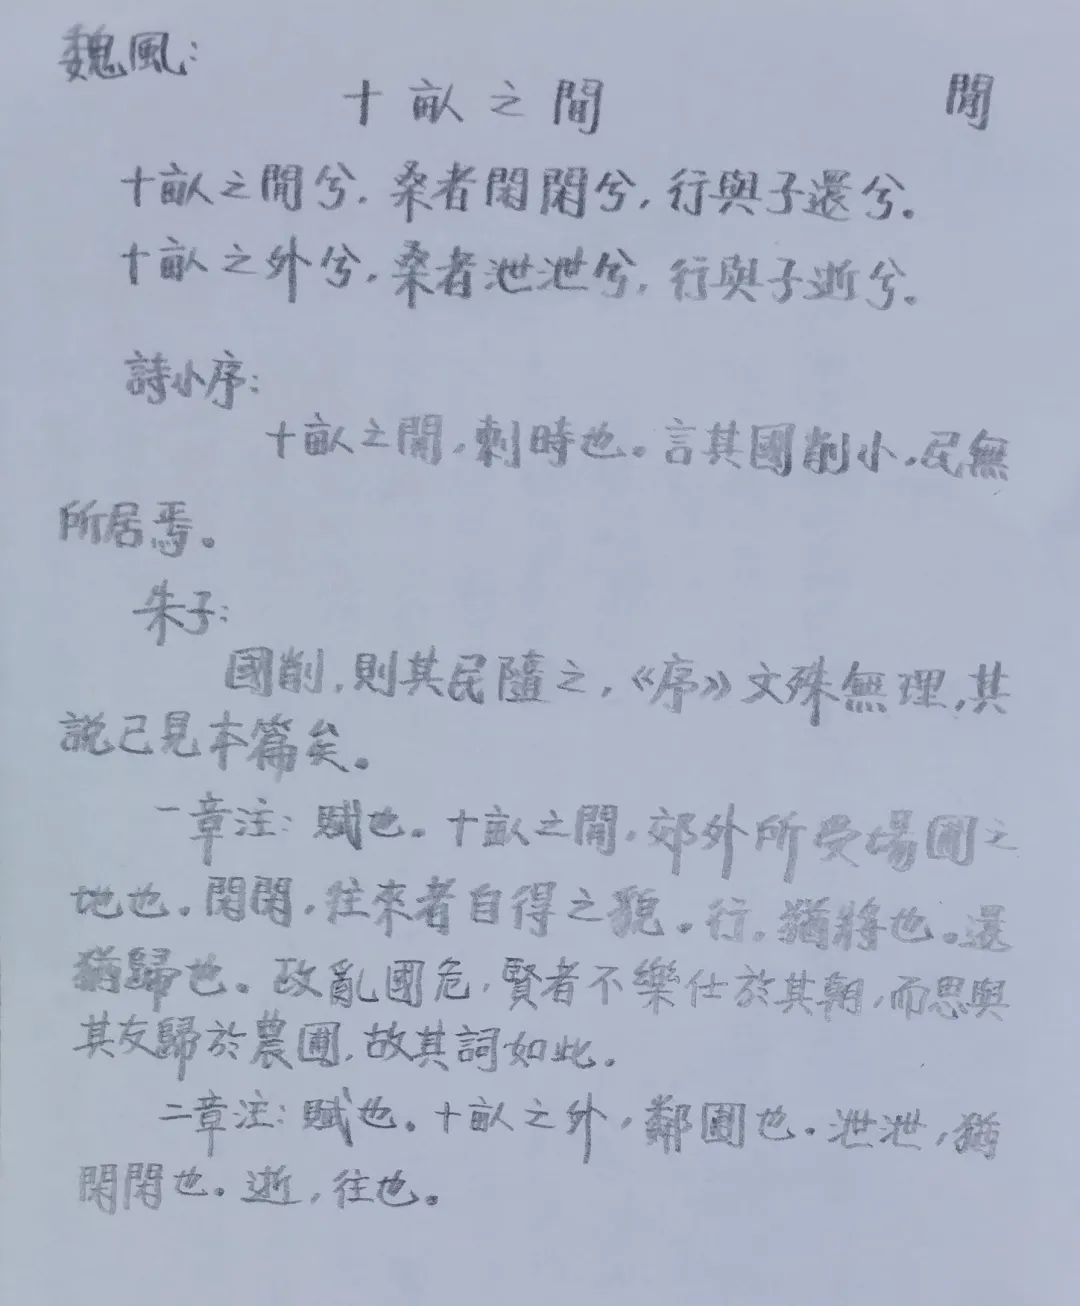 魏風：
十畝之間 閒
十畝之閒兮，桑者閑閑兮，行與子還兮。
十畝之外兮，桑者泄泄兮，行與子逝兮。
詩小序：
十畝之閒，刺時也。言其國削小，民無
所居焉。
朱子：
國削，則其民隨之，《序》文殊無理，其
説已見本篇矣。
一章注：賦也。十畝之閒，郊外所受場圃之
地也。閑閑，往來者自得之貌。行，猶將也。還
猶歸也。政亂國危，賢者不樂仕於其朝，而思與
其友歸於農圃，故其詞如此。
二章注：賦也。十畝之外，鄰圃也。泄泄，猶
閑閑也。逝，往也。